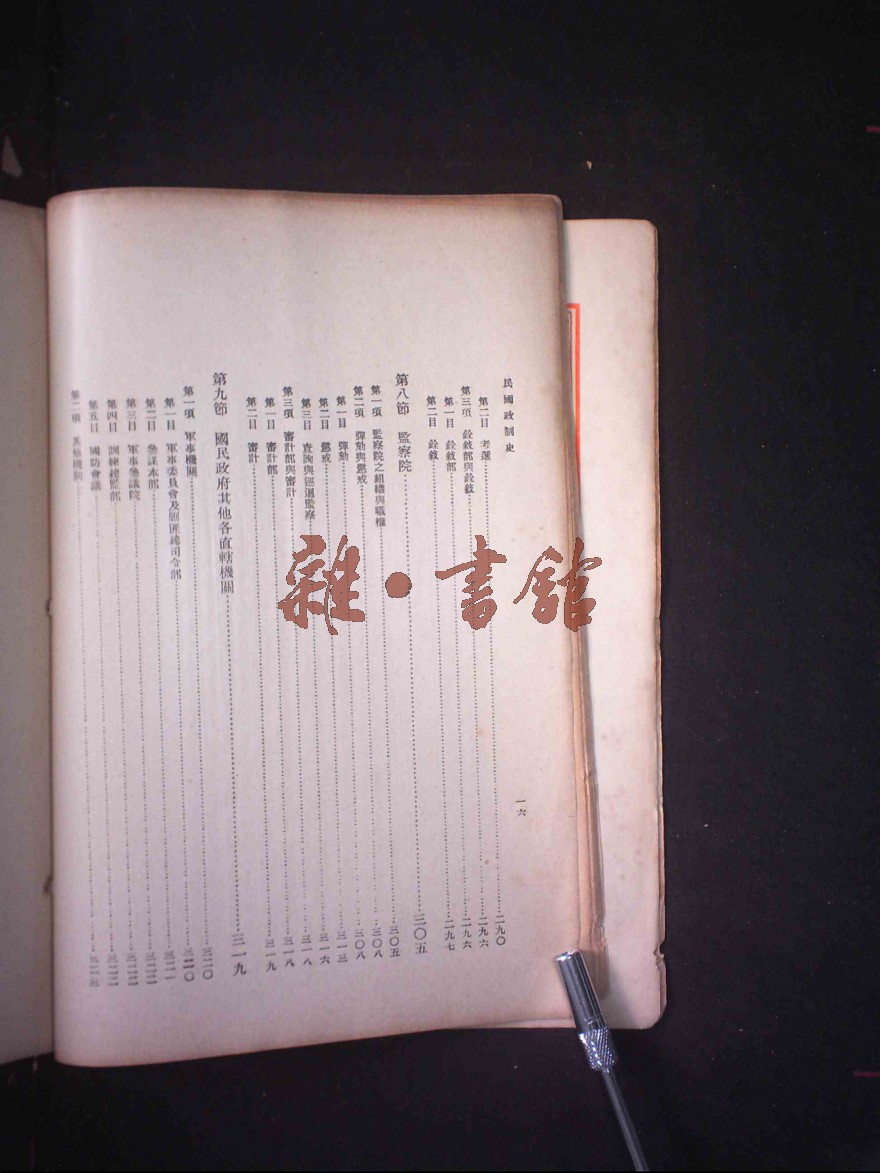 民國政制史 一六
第二目 考選 二九〇
第三項 銓敍部與銓敍 二九六
第一目 銓敍部 二九六
第二目 銓敍 二九七
第八節 監察院 三〇五
第一項 監察院之組織與職權 三〇五
第二項 彈劾與懲戒 三〇八
第一目 彈劾 三〇八
第二目 懲戒 三一三
第三目 查詢與巡迴監察 三一六
第三項 審計部與審計 三一八
第一目 審計部 三一八
第二目 審計 三一九
第九節 國民政府其他各直轄機關 三一九
第一項 軍事機關 三二〇
第一目 軍事委員會及剿匪總司令部 三二〇
第二目 參謀本部 三二一
第三目 軍事參議院 三二二
第四目 訓練總監部 三二二
第五目 國防會議 三二二
第二項 其他機關 三二三
雜·書館